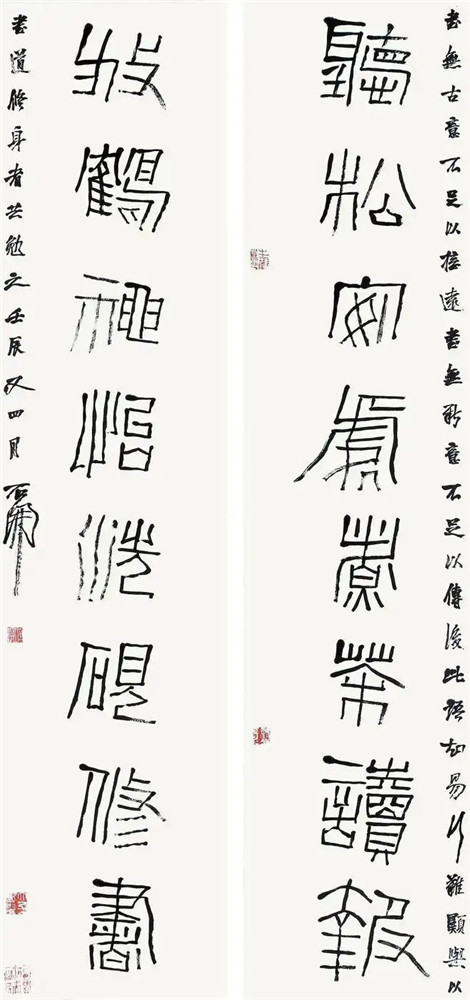 書無古意不足以遠書無新意不足以傳後此語知易行難願與以
聽松安處煮茶讀報
放鶴神怡洗硯修書
書道修身者共勉之壬辰又四月石開